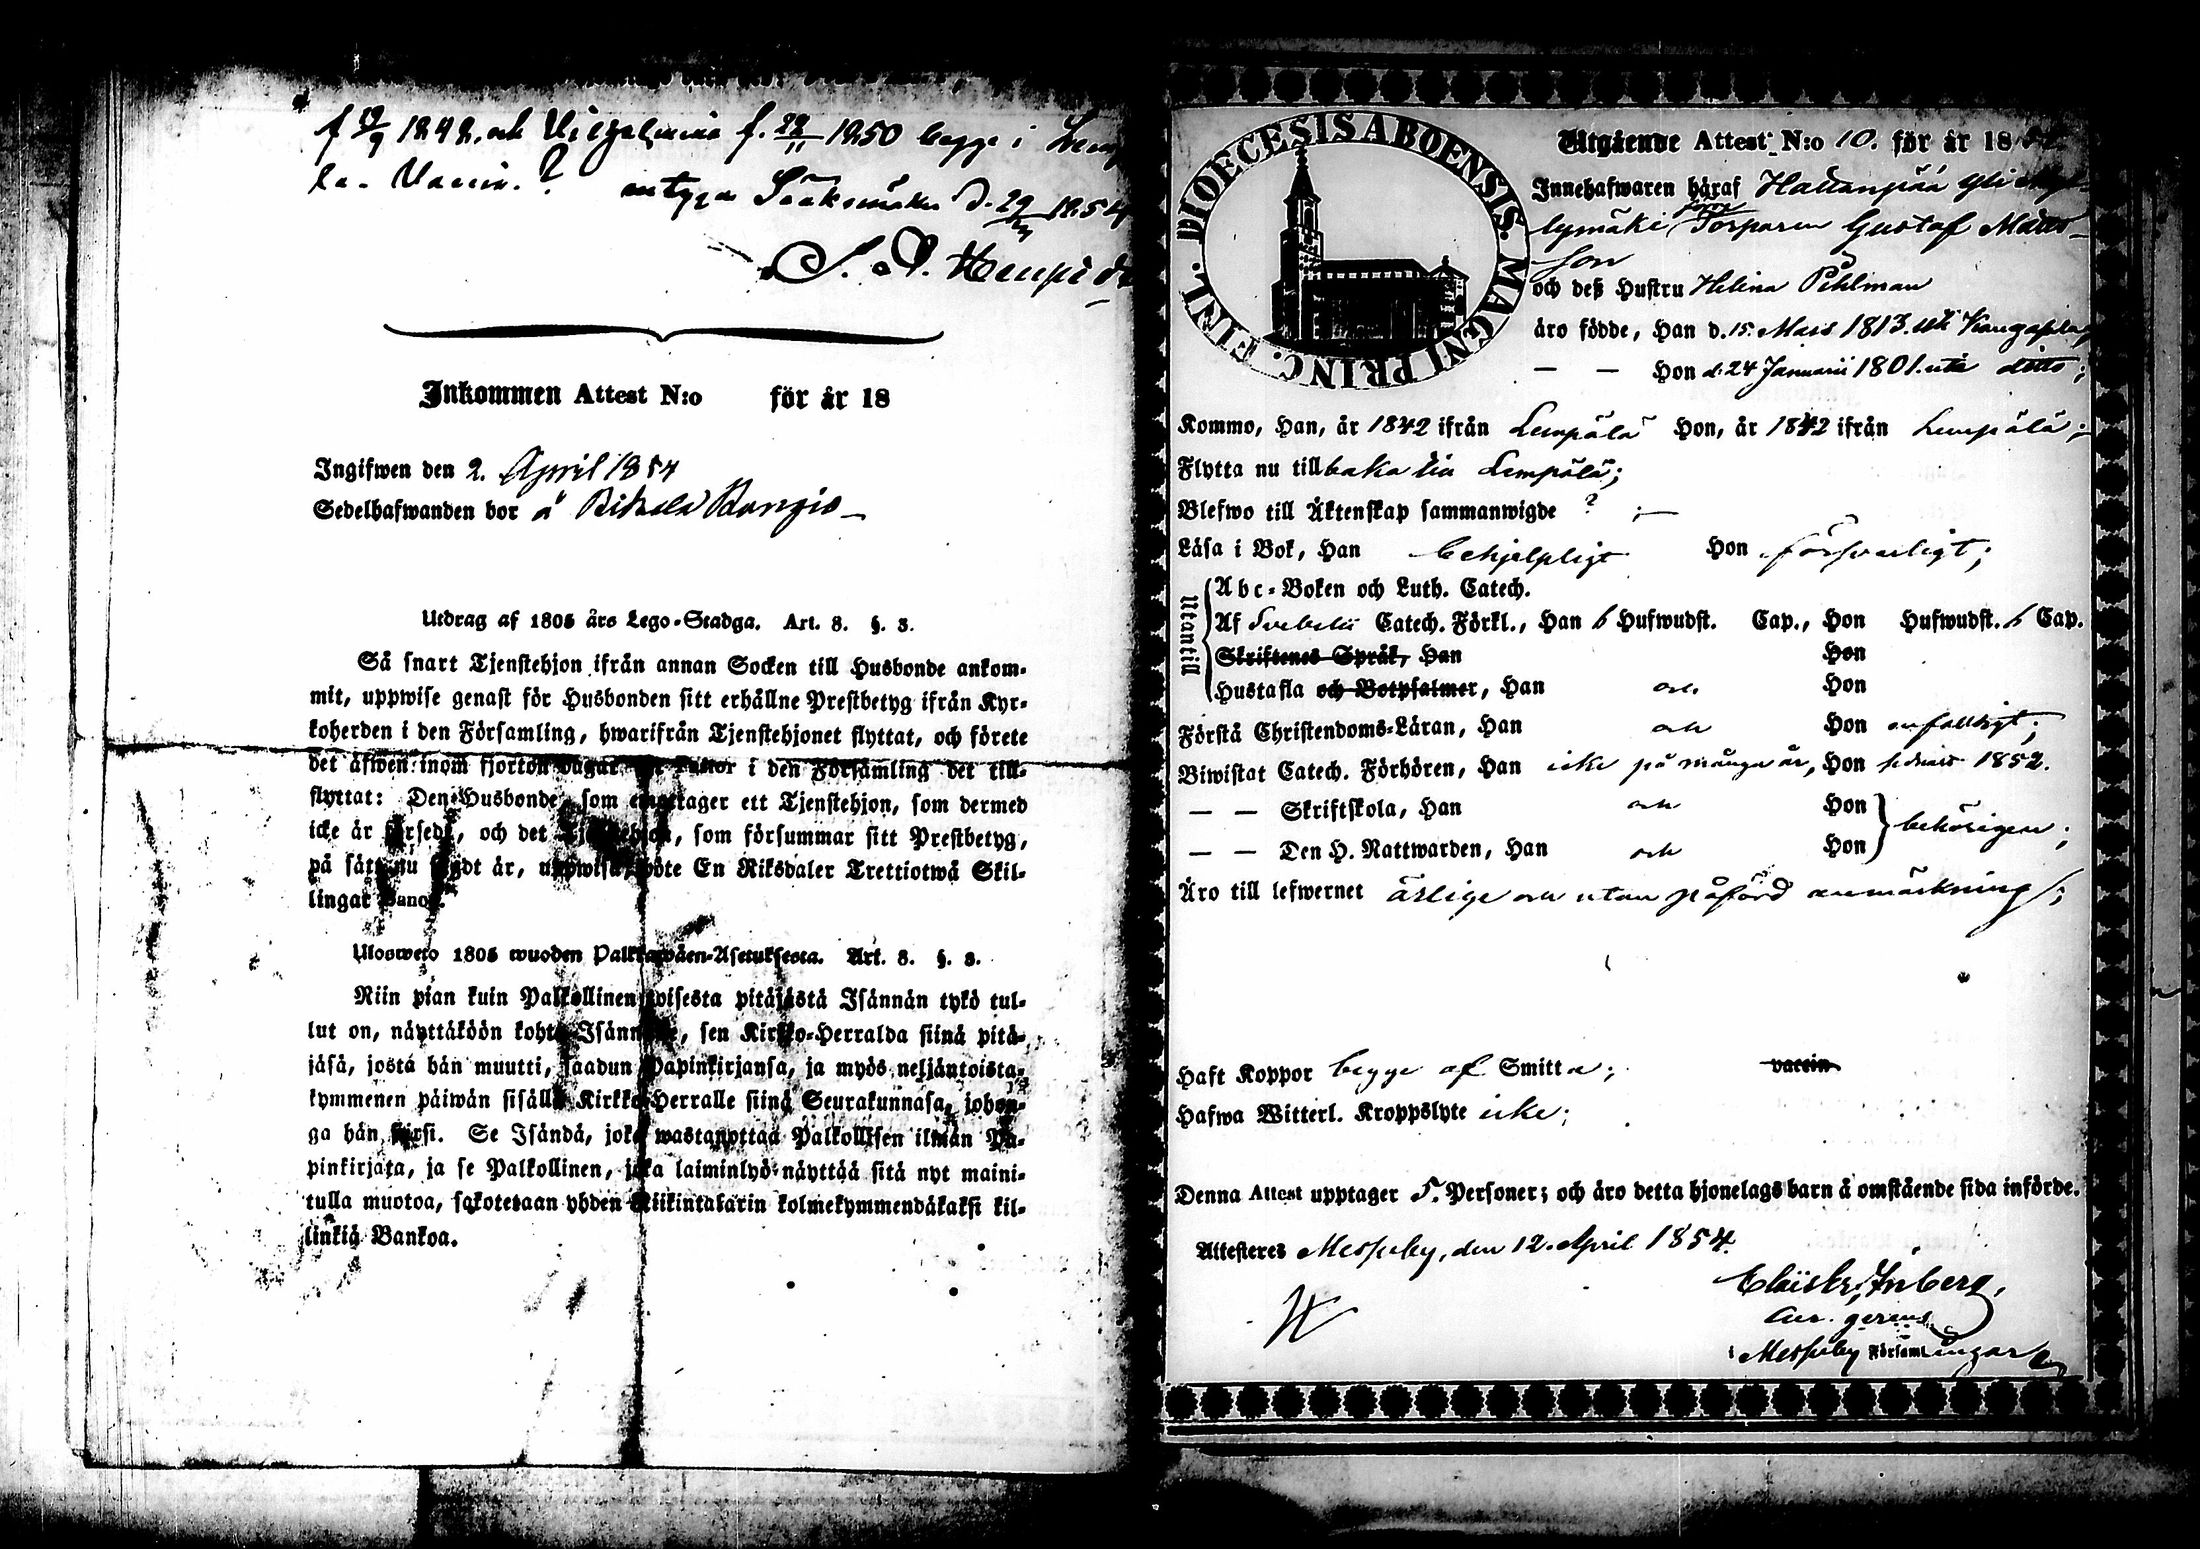 1842. och Vilhelmina f. 28/11 1850 begge i
la. Vaccin. ? Sääksmäki d. 29 1854
Inkommen Attest N:o för år 18
Ingifwen den 2. April 1854
Sedelhafwanden bor å
Utdrag af 1805 års Lego-Stadga. Art. 8. §. 3.
Så snart Tjenstehjon ifrån annan Socken till Husbonde ankom-
mit, uppwise genast för Husbonden sitt erhållne Prestbetyg ifrån Kyr-
koherden i den Församling, hwarifrån Tjenstehjonet flyttat, och förete
det äfwen inom fjorton dagar i den Församling det till-
flyttat: Den Husbonde, som emottager ett Tjenstehjon, som dermed
icke är försedt, och det Tjenstehjon, som försummar sitt Prestbetyg,
på sätt nu sagdt är, uppwisa, böte En Riksdaler Trettiotwå Skil-
lingar Banco.
Ulosweto 1805 wuoden Palkkawäen-Asetuksesta. Art. 8. §. 3.
Niin pian kuin Palkollinen toisesta pitäjästä Isännän tykö tul-
lut on, näyttäköön kohta Isännälle, sen Kirkko-Herralda siinä pitä-
jäsä, josta hän muutti, saadun Papinkirjansa, ja myös neljäntoista-
kymmenen päiwän sisällä Kirkko-Herralle siinä Seurakunnasa, johon-
ga hän siirsi. Se Isändä, joka wastanottaa Palkollisen ilman Pa-
pinkirjata, ja se Palkollinen, joka laiminlyö näyttää sitä nyt maini-
tulla muotoa, sakotetaan yhden Riikintalarin kolmekymmendäkaksi kil-
linkiä Bankoa.
DIOECESIS ABOENSIS. MAGNI PRINC. FINL.
Utgående Attest N:o 10. för år 18
Innehafwaren häraf Hattanpää Yli
lymäki Torparen Gustaf Matts-
son
och deß Hustru Helina Pihlman
äro födde, Han d. 15. Mars 1813. uti Kangasala,
— — Hon d. 24 Januarii 1801. uti ditto;
Kommo, Han, år 1842 ifrån Lempälä Hon, år 1842 ifrån Lempälä;
Flytta nu tillbaka till Lempälä;
Blefwo till Äktenskap sammanwigde ? ;—
Läsa i Bok, Han behjelpligt Hon förswarligt;
Utantill
Abc-Boken och Luth. Catech.
Af Svebelii Catech. Förkl., Han 6 Hufwudst. Cap., Hon Hufwudst. 6 Cap.
Skriftenes Språk, Han Hon
Hustafla och Botpsalmer, Han och Hon
Förstå Christendoms-Läran, Han och Hon enfalldigt;
Biwistat Catech. Förhören, Han icke på många år, Hon 1852.
— — Skriftskola, Han och Hon
behörigen;
— — Den H. Nattwarden, Han och Hon
Äro till lefwernet ärlige och utan påförd anmärkning;
Haft Koppor begge af Smitta; vaccin
Hafwa Witterl. Kroppslyte icke;
Denna Attest upptager 5. Personer; och äro detta hjonelags barn å omstående sida införde.
Attesteras Messuby, den 12. April 1854.
Cur. gerens
i Messuby Församlingar